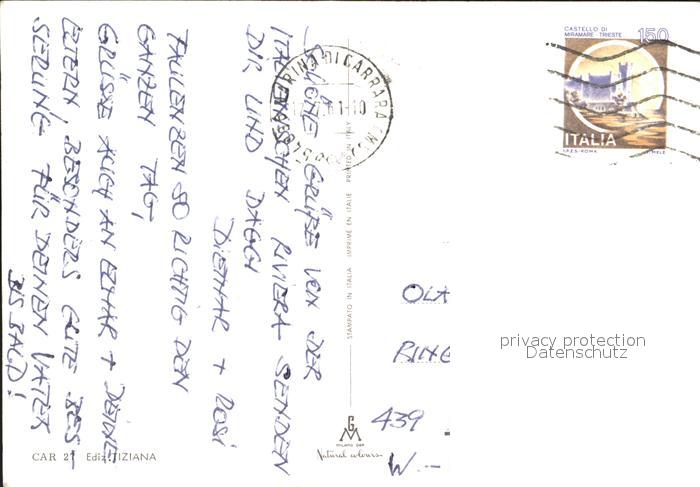 SCHÖNE GRÜßE VON DER
ITALIENISCHEN RIVIERA SENDEN
DIR UND DAGGI
DIETMAR + ROSI
FAULENZEN SO RICHTIG DEN
GANZEN TAG,
GRÜSSE AUCH AN ELMAR + DEINE
ELTERN/ BESONDERS GUTE BES-
SERUNG FÜR DEINEN VATER
BIS BALD!
CAR 27 Ediz. TIZIANA
MARINA DI CARRARA
STAMPATO IN ITALIA IMPRIMÉ EN ITALIE PRINTED IN ITALY
MILANO
Natural colours
CASTELLO DI
MIRAMARE - TRIESTE
150
ITALIA
I.P.Z.S.-ROMA
OLA
RING
439
W.--
privacy protection
Datenschutz